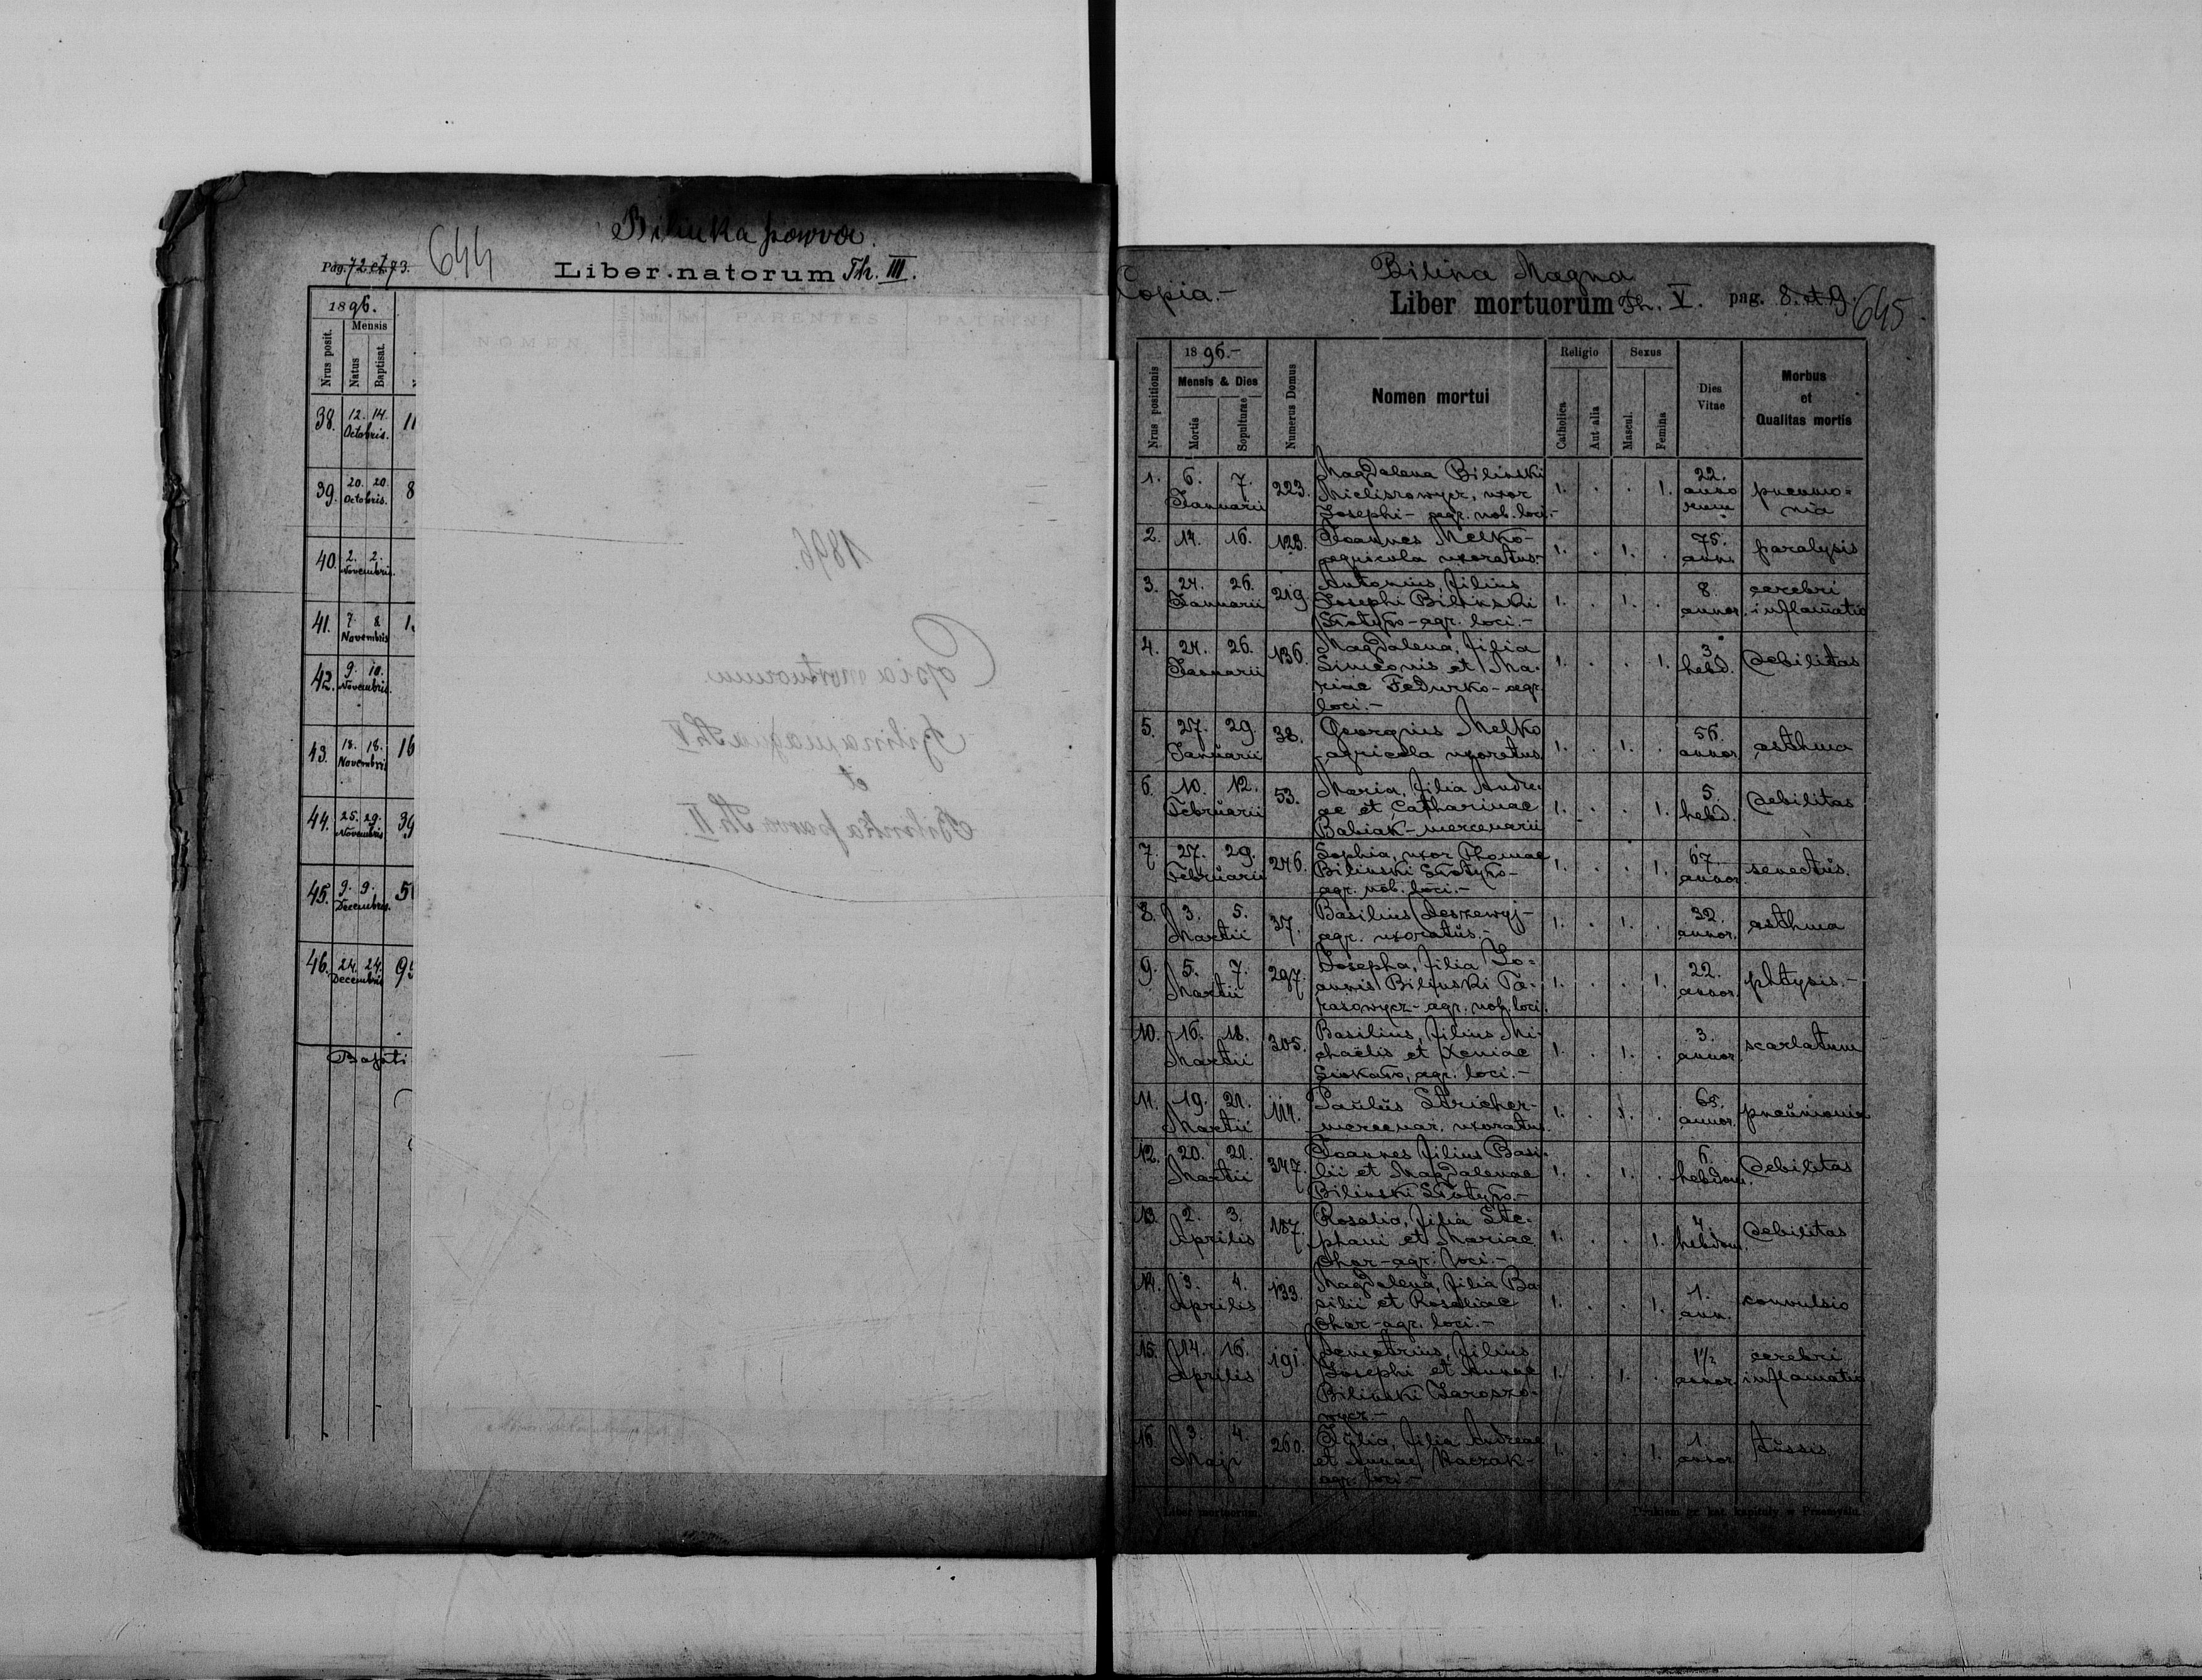 Bilinka parva.
Pag. 72 et 73.
644
Liber natorum Th. III.
1896.
Nrus posit.
Mensis
Natus
Baptisat.
38. 12. 14. Octobris. 11
39. 20. 20. Octobris. 8
40. 2. 2. Novembris.
41. 7. 8. Novembris 1
42. 9. 10. Novembris.
43. 18. 18. Novembris 16
44. 25. 29. Novembris 39
45. 9. 9. Decembris. 5
46. 24. 24. Decembris 9
Bapti
NOMEN
PARENTES
PATRINI
1896.
Copia mortuorum
Bilina magna Th V
et
Bilinka parva Th II.
Copia.-
Bilina Magna
Liber mortuorum Th. V. pag. 8. et 9.
645
Nrus positionis
1896.-
Mensis & Dies
Mortis
Sepulturae
Numerus Domus
Nomen mortui
Religio
Catholica
Aut alia
Sexus
Mascul.
Femina
Dies
Vitae
Morbus
et
Qualitas mortis
1. 6. 7. Magdalena Bilinski 22.
Januarii 223. uxor 1. . . 1. anno pneumo=
Josephi - agr. nob. loci.- rum nia
2. 14. 16. 123. Joannes Melko- 75. paralysis
agricola uxoratus.- 1. . 1. . ann.
3. 24. 26. 219. Antonius, filius 8. cerebri
Januarii Josephi Bilinski 1. . 1. . annor. inflamatio
agr. loci.-
4. 24. 26. 136. Magdalena, filia 3.
Januarii Simeonis et Ma- 1. . . 1. hebd. debilitas
riae Fedurko - agr.
loci.-
5. 27. 29. 38. Georgius Melko 56.
Januarii agricola uxoratus 1. . 1. . annor asthma
6. 10. 12. 53. Maria, filia Andre- 5. debilitas
Februarii ae et Catharinae 1. . . 1. hebd.
Babiak - mercenarii
7. 27. 29. 276. Sophia, uxor Thomae 67.
Februarii Bilinski 1. . . 1. annor. senectus.
agr. nob. loci.-
8. 3. 5. 37. Basilius 32.
Martii agr. uxoratus.- 1. . 1. . annor. asthma
9. 5. 7. 297. Josepha, filia Jo- 22.
Martii annis Bilinski Ta- 1. . . 1. annor. phtysis.-
rasowycz - agr. nob. loci.
10. 16. 18. 305. Basilius, filius Mi- 3.
Martii chaëlis et Xeniae 1. . 1. . annor. scarlatum
agr. loci.-
11. 19. 21. 114. Paulus 65.
Martii mercenar. uxoratus. 1. . 1. . annor. pneumonia
12. 20. 21. 347. Joannes filius Basi- 6.
Martii lii et Magdalenae 1. . 1. . hebdom. debilitas
Bilinski
13. 2. 3. 187. Rosalia, filia Ste-
Aprilis phani et Mariae 1. . . 1. hebdom. debilitas
agr. loci.-
14. 3. 4. 133. Magdalena, filia Ba- 1.
Aprilis silii et Rosaliae 1. . . 1. ann. convulsio
agr. loci.-
15. 14. 16. 191. Demetrius, filius 1½ cerebri
Aprilis Josephi et Annae 1. . 1. . annor. inflamatio
Bilinski Jaroszo-
wycz.-
16. 3. 4. 260. Julia, filia Andreae 1.
Maji et Annae 1. . . 1. annor tussis.
agr. loci.-
Liber mortuorum.
Drukiem gr. kat. kapituły w Przemyślu.